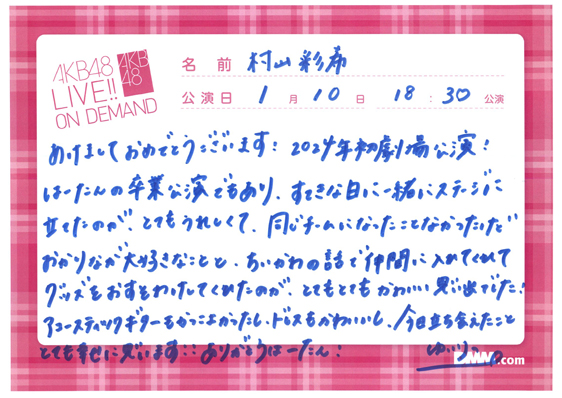 AKB48
LIVE!!
ON DEMAND
AKB
48
名前 村山彩希
公演日 1月10日 18:30公演
あけましておめでとうございます! 2024年初劇場公演!
はーたんの卒業公演でもあり、すてきな日に一緒にステージに
立てたのが、とてもうれしくて、同じチームになったことなかったけど
おかりなが大好きなことと、ちいかわの話で仲間に入れてくれて
グッズをおすそわけしてくれたのが、とてもとてもかわいい思い出でした!
アコースティックギターもかっこよかったし、ドレスもかわいいし、今日立ち会えたこと
とても幸せに思います!! ありがとうはーたん! ゆいりー
DMM.com